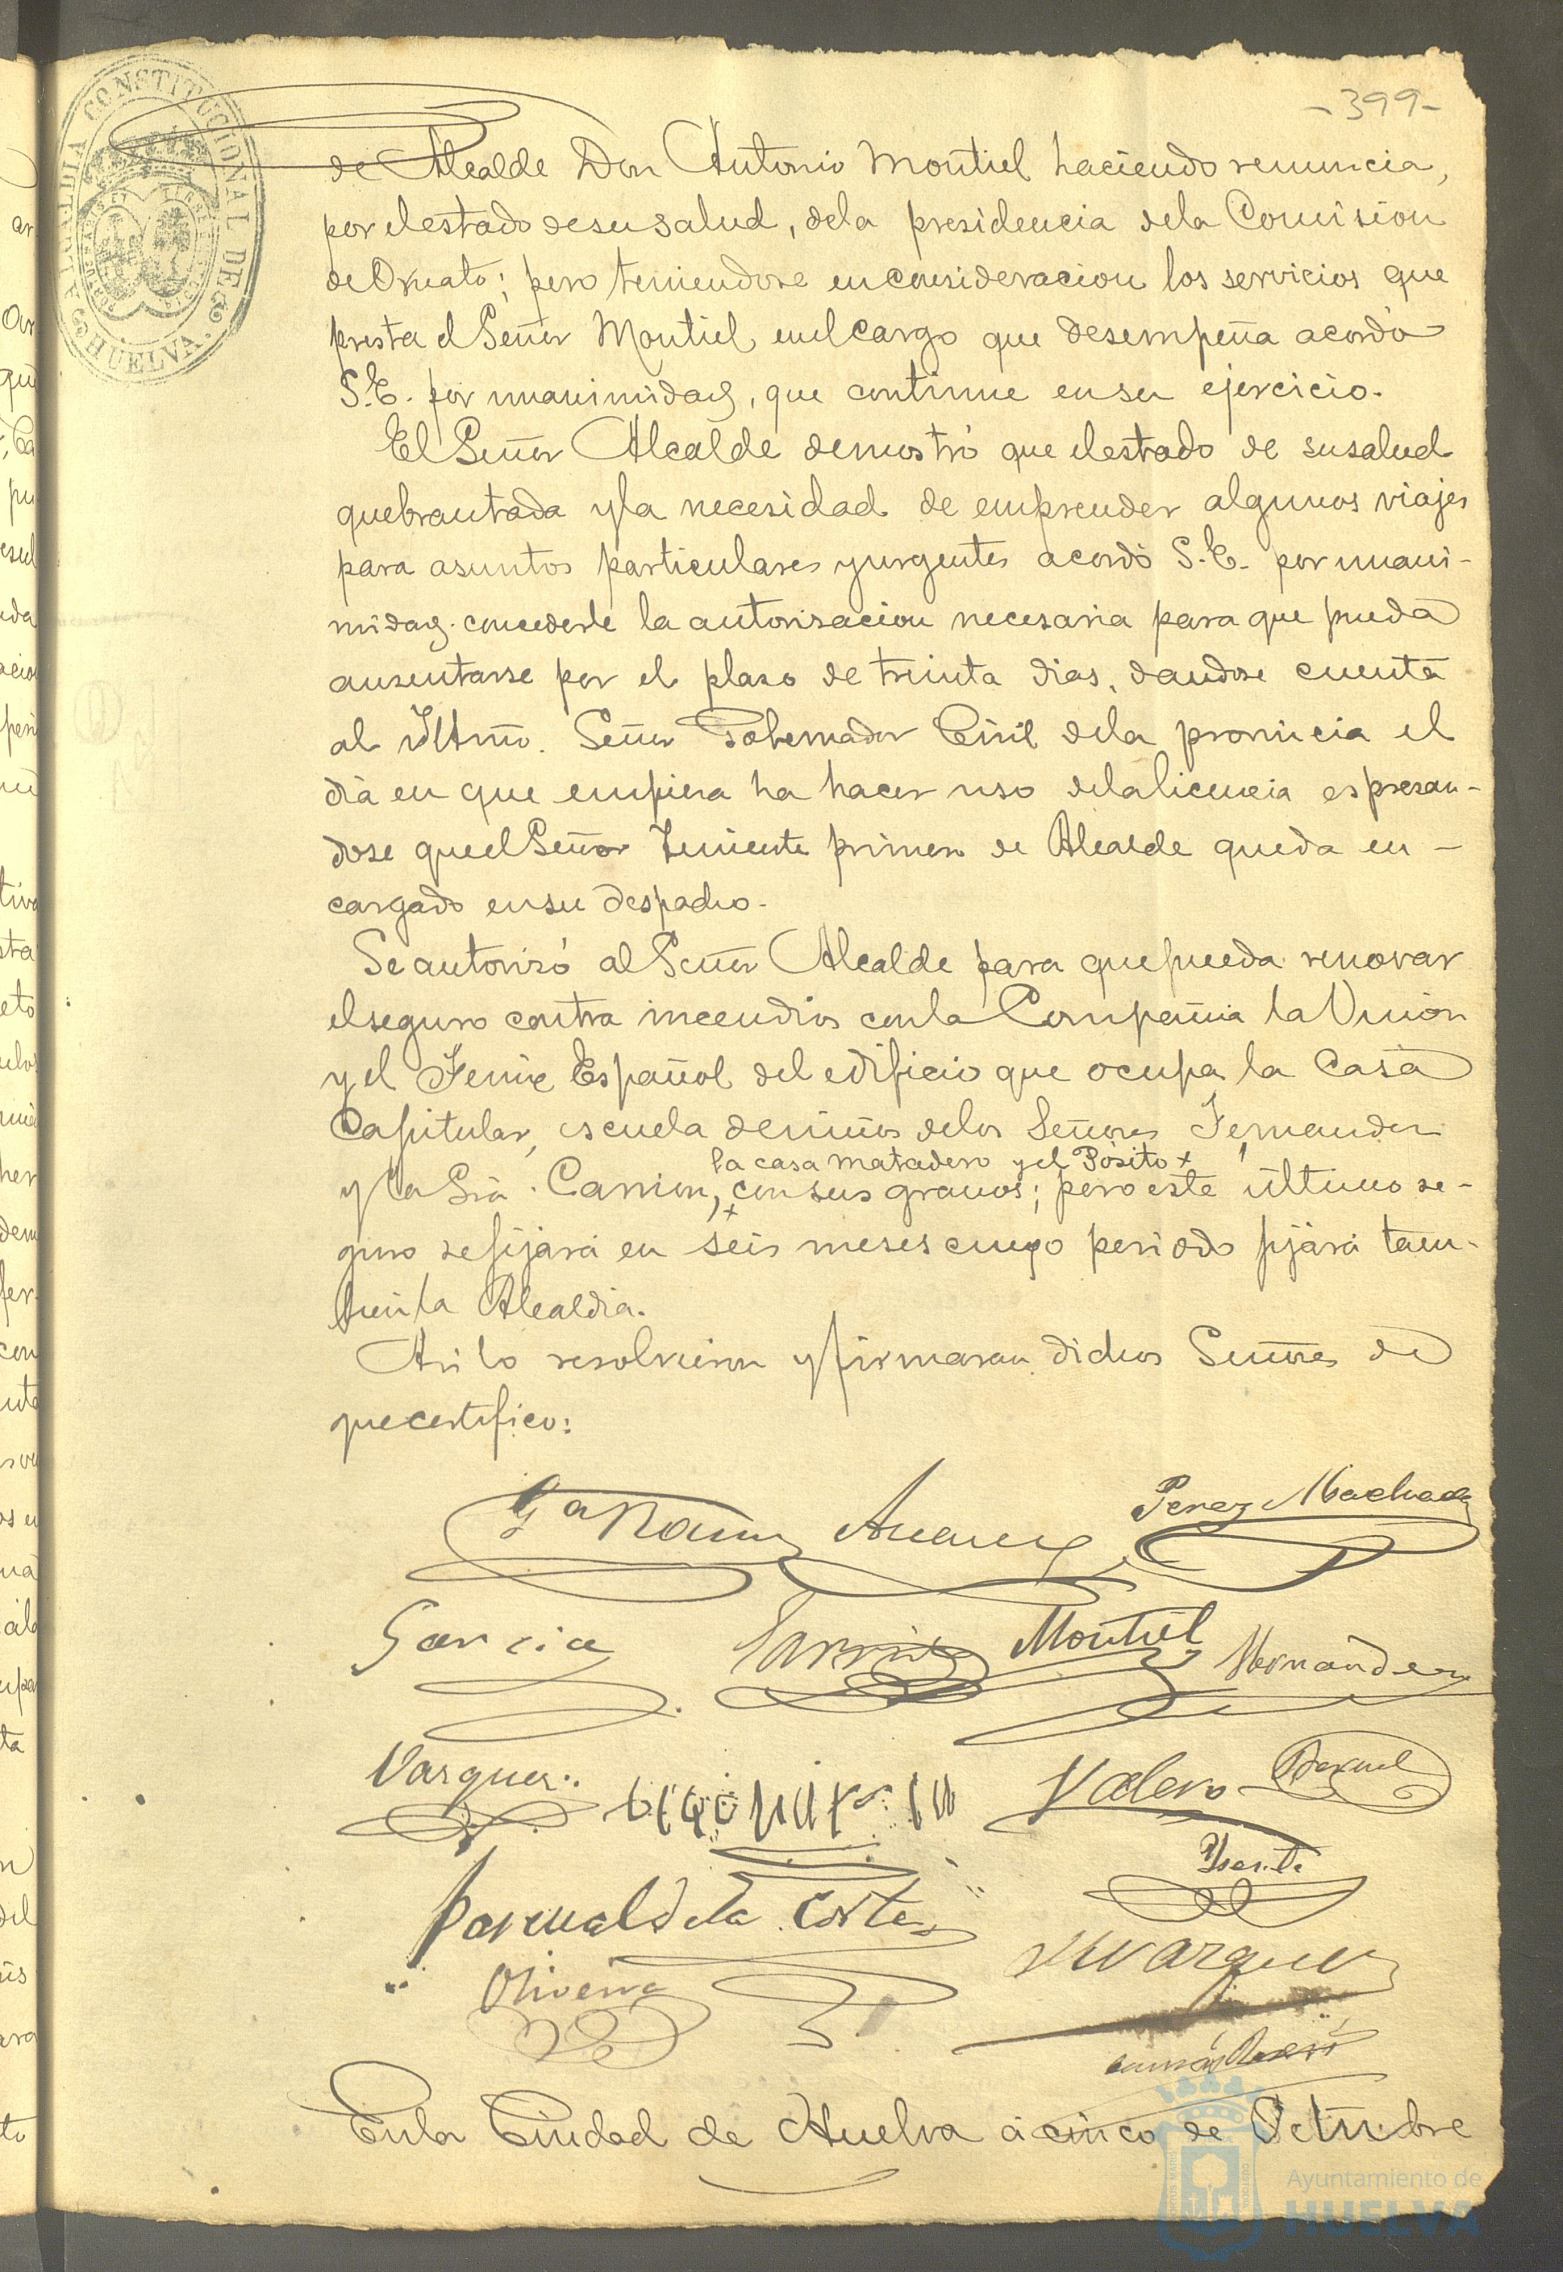 -399-
ALCALDIA CONSTITUCIONAL DE HUELVA.
de Alcalde Don Antonio Montiel haciendo renuncia,
por el estado de su salud, de la presidencia de la Comision
de Ornato; pero teniendose en consideracion los servicios que
presta el Señor Montiel en el cargo que desempeña acordó
S.E. por unanimidad, que continue en su ejercicio.
El Señor Alcalde demostró que el estado de su salud
quebrantada y la necesidad de emprender algunos viajes
para asuntos particulares y urgentes acordó S.E. por unani-
midad concederle la autorizacion necesaria para que pueda
ausentarse por el plazo de treinta dias, dandose cuenta
al Iltmo. Señor Gobernador Civil de la provincia el
dia en que empieza ha hacer uso de la licencia espresan-
dose que el Señor Teniente primero de Alcalde queda en-
cargado en su despacho.
Se autorizó al Señor Alcalde para que pueda renovar
el seguro contra incendios con la Compañia la Union
y el Fenix Español del edificio que ocupa la Casa
Capitular, escuela de niños de los Señores Fernandez
la casa matadero y el Pósito x
y la Srá. Carrion, x con sus granos; pero este ultimo se-
guro se fijará en seis meses cuyo periodo fijará tam-
bien la Alcaldia.
Asi lo resolvieron y firmaran dichos Señores de
que certifico:
Gª Ramos Perez Machado
Garcia Montiel Hernández
Vazquez Valero Bernal
Bernal de la Corte
Oliveira Vazquez
En la Ciudad de Huelva á cinco de Octubre
Ayuntamiento de
HUELVA